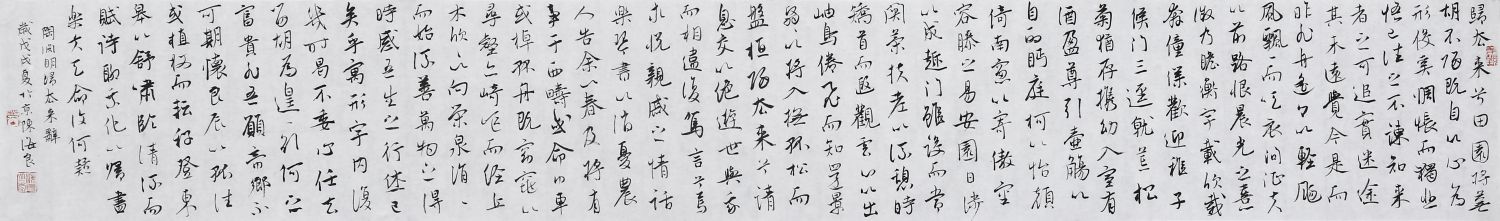 歸去來兮田園將蕪
胡不歸既自以心為
形役奚惆悵而獨悲
悟已往之不諫知來
者之可追實迷途
其未遠覺今是而
昨非舟遙々以輕颺
風飄々而吹衣問征夫
以前路恨晨光之熹
微乃瞻衡宇載欣載
奔僮僕歡迎稚子
候門三逕就荒松
菊猶存攜幼入室有
酒盈尊引壺觴以
自酌眄庭柯以怡顏
倚南窗以寄傲審
容膝之易安園日涉
以成趣門雖設而常
關策扶老以流憩時
矯首而遐觀雲以出
岫鳥倦飛而知還景
翳々以將入撫孤松而
盤桓歸去來兮請
息交以絕遊世與我
而相違復駕言兮焉
求悅親戚之情話
樂琴書以消憂農
人告余以春及將有
事于西疇或命巾車
或棹孤舟既窈窕以
尋壑亦崎嶇而經丘
木欣々以向榮泉涓々
而始流善萬物之得
時感吾生之行休已
矣乎寓形宇內復
幾時曷不委心任去
留胡為遑々欲何之
富貴非吾願帝鄉不
可期懷良辰以孤往
或植杖而耘耔登東
皋以舒嘯臨清流而
賦詩聊乘化以歸盡
樂夫天命復何疑
陶淵明歸去來辭
歲戊戌夏於京陳海良